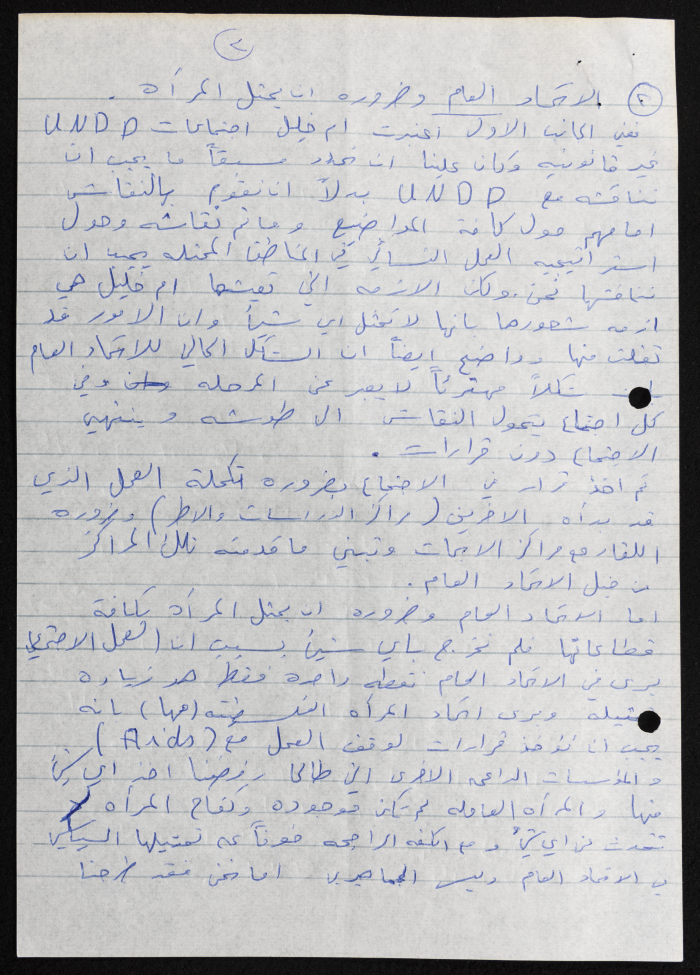 ٢
٢ الاتحاد العام وضروره ان يمثل المرأه .
ففي الجانب الاول اعتبرت ام خليل اجتماعات UNDP
غير قانونيه وكان علينا ان نحدد مسبقاً ما يجب ان
نناقشه مع UNDP بدلاً ان نقوم بالنقاش
امامهم حول كافة المواضيع وما تم نقاشه وحول
استراتيجيه العمل النسائي في المناطق المحتله يجب ان
نناقشها نحن . ولكن الازمه التي تعيشها ام خليل هي
ازمه شعورها بانها لا تمثل اي شيئاً وان الامور قد
تفلت منها وواضح ايضاً ان الشكل الحالي للاتحاد العام
شكلاً مهترئاً لا يعبر عن المرحله وفي
كل اجتماع يتحول النقاش الى طوشه وينتهي
الاجتماع دون قرارات .
تم اخذ قرار في الاجتماع بضروره تكملة العمل الذي
قد بدأه الاخرين (مراكز الدراسات والاطر) وضروره
اللقاء مع مراكز الابحاث وتبني ما قدمته تلك المراكز
من قبل الاتحاد العام .
اما الاتحاد العام وضروره ان يمثل المرأه بكافة
قطاعاتها فلم نخرج باي شيئ بسبب ان العمل الاجتماعي
يرى في الاتحاد العام نقطه واحده فقط هو زياده
تمثيله ويرى اتحاد المرأه الفلسطينيه (مها) بانه
يجب ان تؤخذ قرارات لوقف العمل مع (Aids)
والمؤسسات الداعمه الاخرى التي طالما رفضنا اخذ اي شيئ
منها والمرأه العامله لم تكن موجوده وكفاح المرأه لا
تتحدث عن اي شيئ ومع الكفه الراجحه خوفاً على تمثيلها السياسي
في الاتحاد العام وليس الجماهيري . اما نحن فقد طرحنا